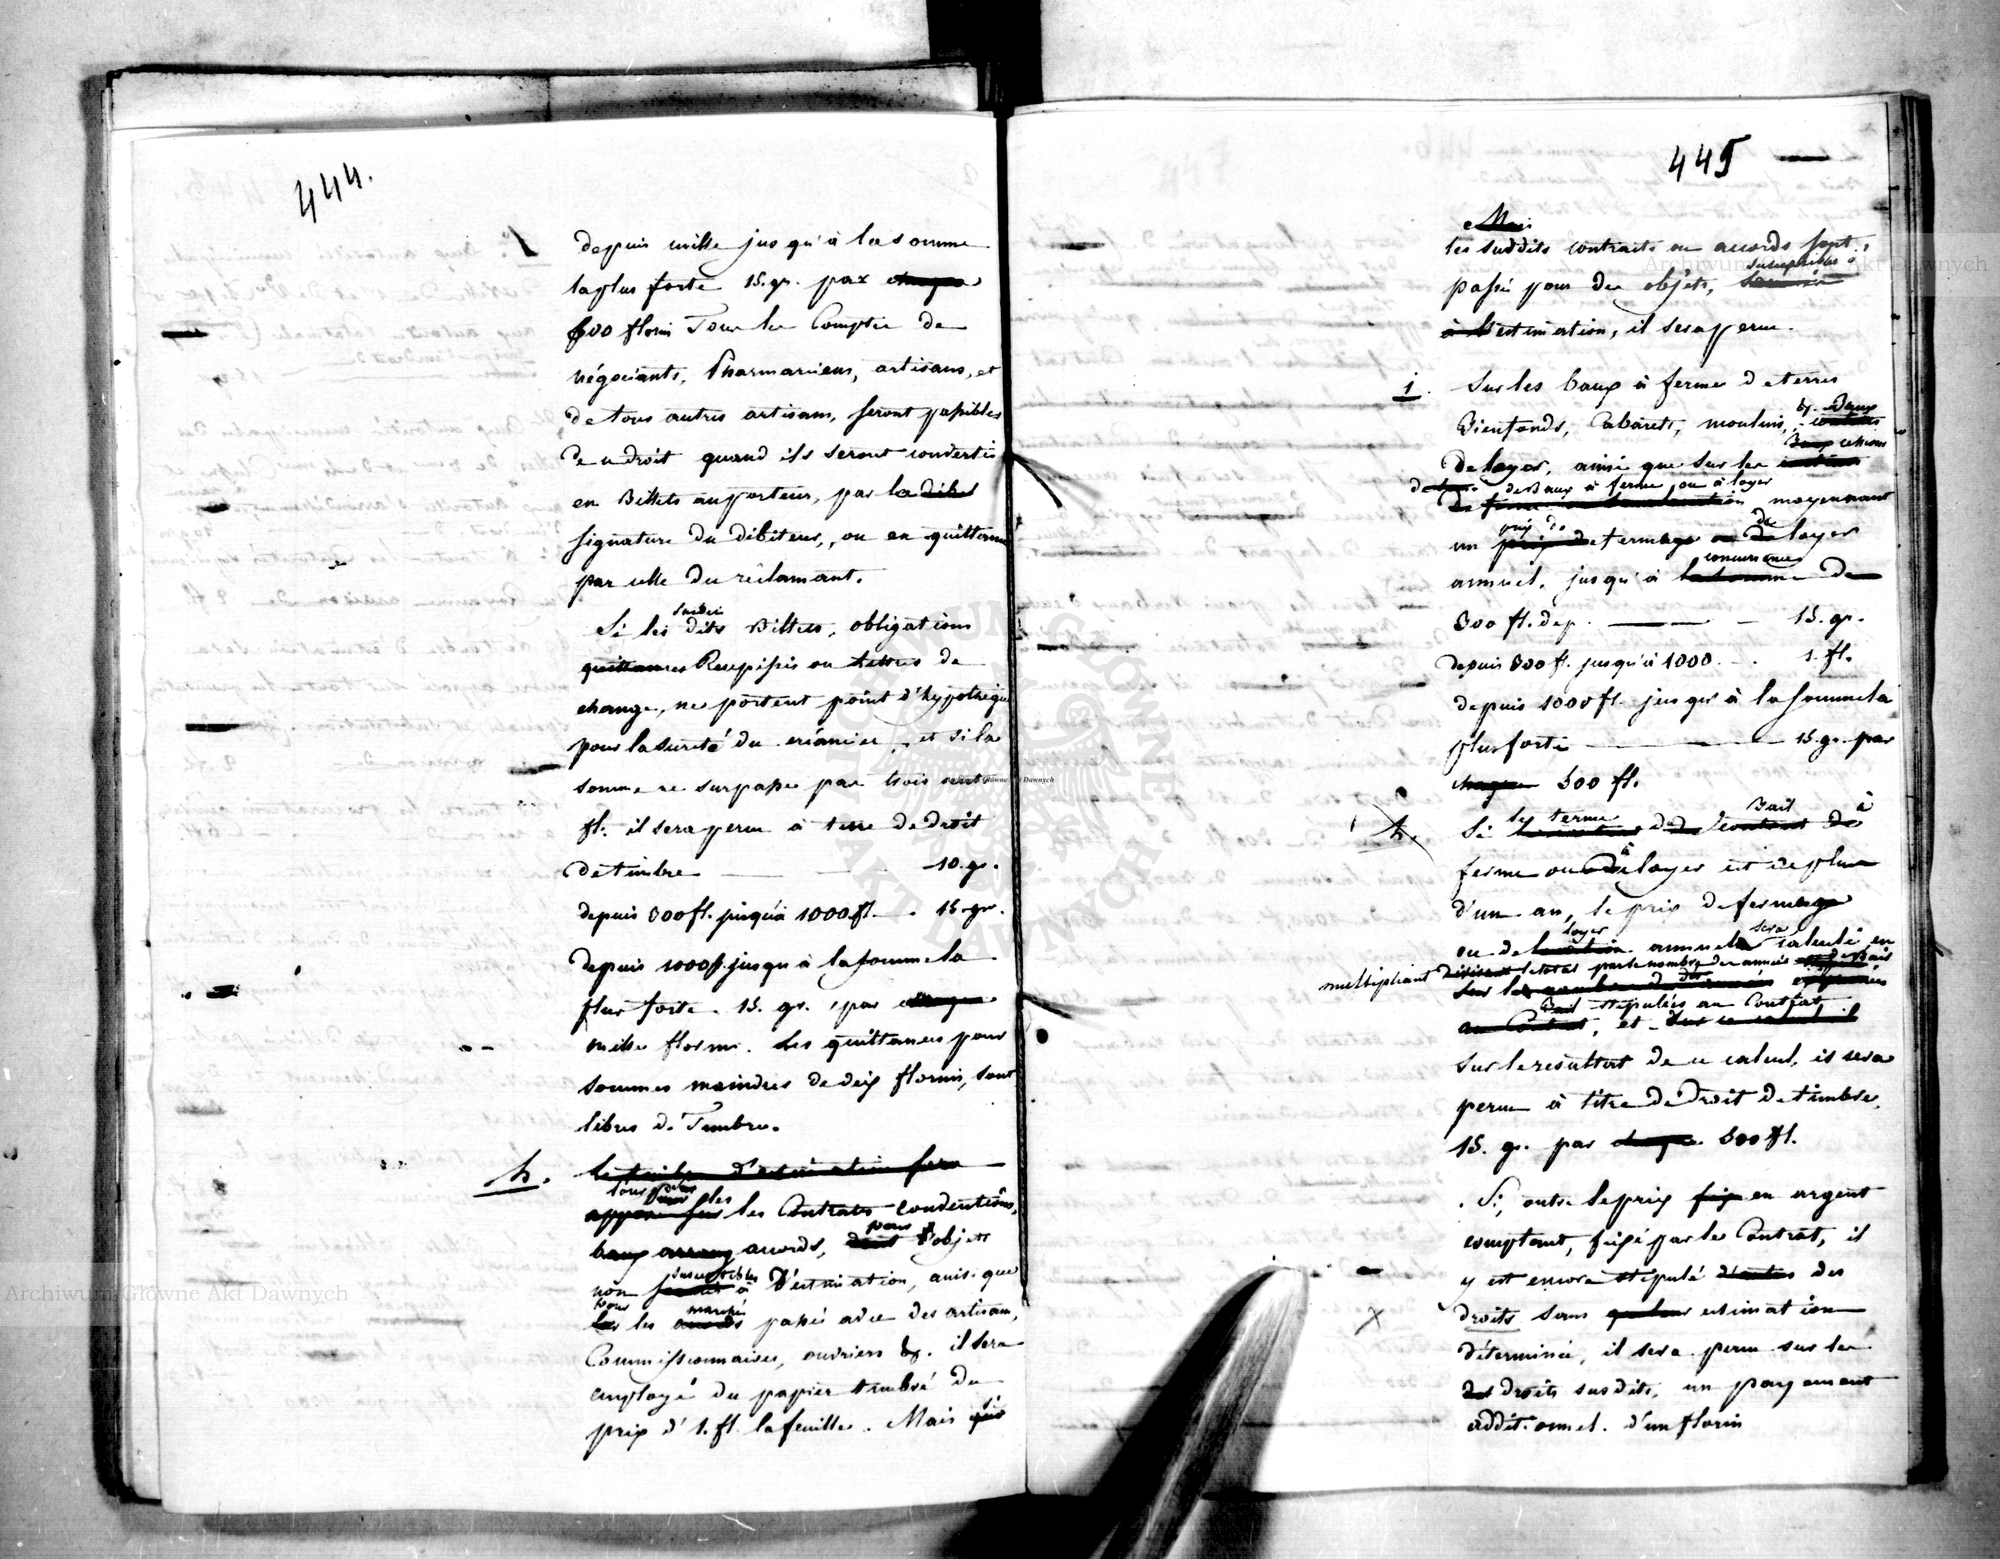 444.
depuis mille jusqu'à la somme
la plus forte 15. gr. par chaque
500 florin Tous les Comptes de
négocians, Pharmaciens, artisans, et
de tous autres artisans, seront passibles
de ce droit quand ils seront convertis
en Billets au porteur, par la
signature du débiteur, ou en quittance
par celle du réclamant.
susdits
Si les dits Billets, obligations
quittances Recepissés ou lettres de
change, ne portent point d'hypothèque
pour la sureté du créancier, et si la
somme ne surpasse pas trois cents
fl. il sera perçu à titre de droit
de timbre 10. gr.
depuis 300 fl. jusqu'à 1000 fl. 15. gr.
depuis 1000 fl. jusqu'à la somme la
plus forte. 15. gr. par chaque
mille florins. Les quittances pour
sommes moindres de dix florins, sont
libres de Timbre.
h. le timbre d'estimation sera
tous les
apposé sur les Contrats conventions,
pour
baux accords, d'objets
susceptibles
non soumis à d'estimation, ainsi que
tous marchés
les accords passés avec des artisans,
Commissionnaires, ouvriers &. il sera
employé du papier timbré du
prix d'1. fl. la feuille. Mais si
445
Mais
les suddits contrats ou accords sont
susceptibles d'
passés pour des objets, soumis
à l'estimation, il sera perçu.
i. Sur les baux à ferme de terres
&. Baux
Bienfonds, Cabarets, moulins,
cessions
de loyer, ainsi que sur les
de Baux à ferme ou à loyer
moyennant
prix de de
un prix de fermage ou de loyer
concurrence
annuel, jusqu'à la somme de
300 fl. dep. 15. gr.
depuis 300 fl. jusqu'à 1000. 1. fl.
depuis 1000 fl. jusqu'à la somme la
plus forte 15. gr. par
chaque 500 fl.
le terme Bail à
k. Si de contrat de
à
ferme ou de loyer est de plus
d'un an, le prix de fermage
loyer sera
ou de location annuel calculé en
multipliant le total par le nombre des années
sur le nombre des années exprimées
Bail stipulées au Contrat
au Contrat, et sur ce calcul il
sur le resultat de ce calcul, il sera
perçu à titre de Droit de timbre,
15. gr. par chaque 500 fl.
Si, outre le prix fixe en argent
comptant, fixé par le Contrat, il
y est encore stipulé d'autres des
droits sans estimation
déterminée, il sera perçu sur les
des droits susdits, un payement
additionnel. d'un florin
Archiwum Główne Akt Dawnych